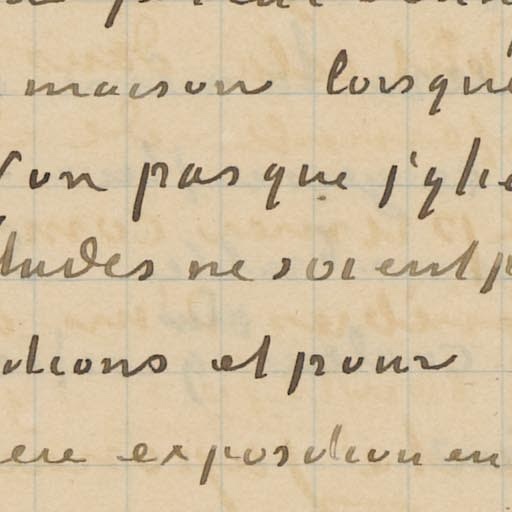 maison lorsque
l'on pas que j'y
tudes ne soient p
itions et pour
ère exposition en